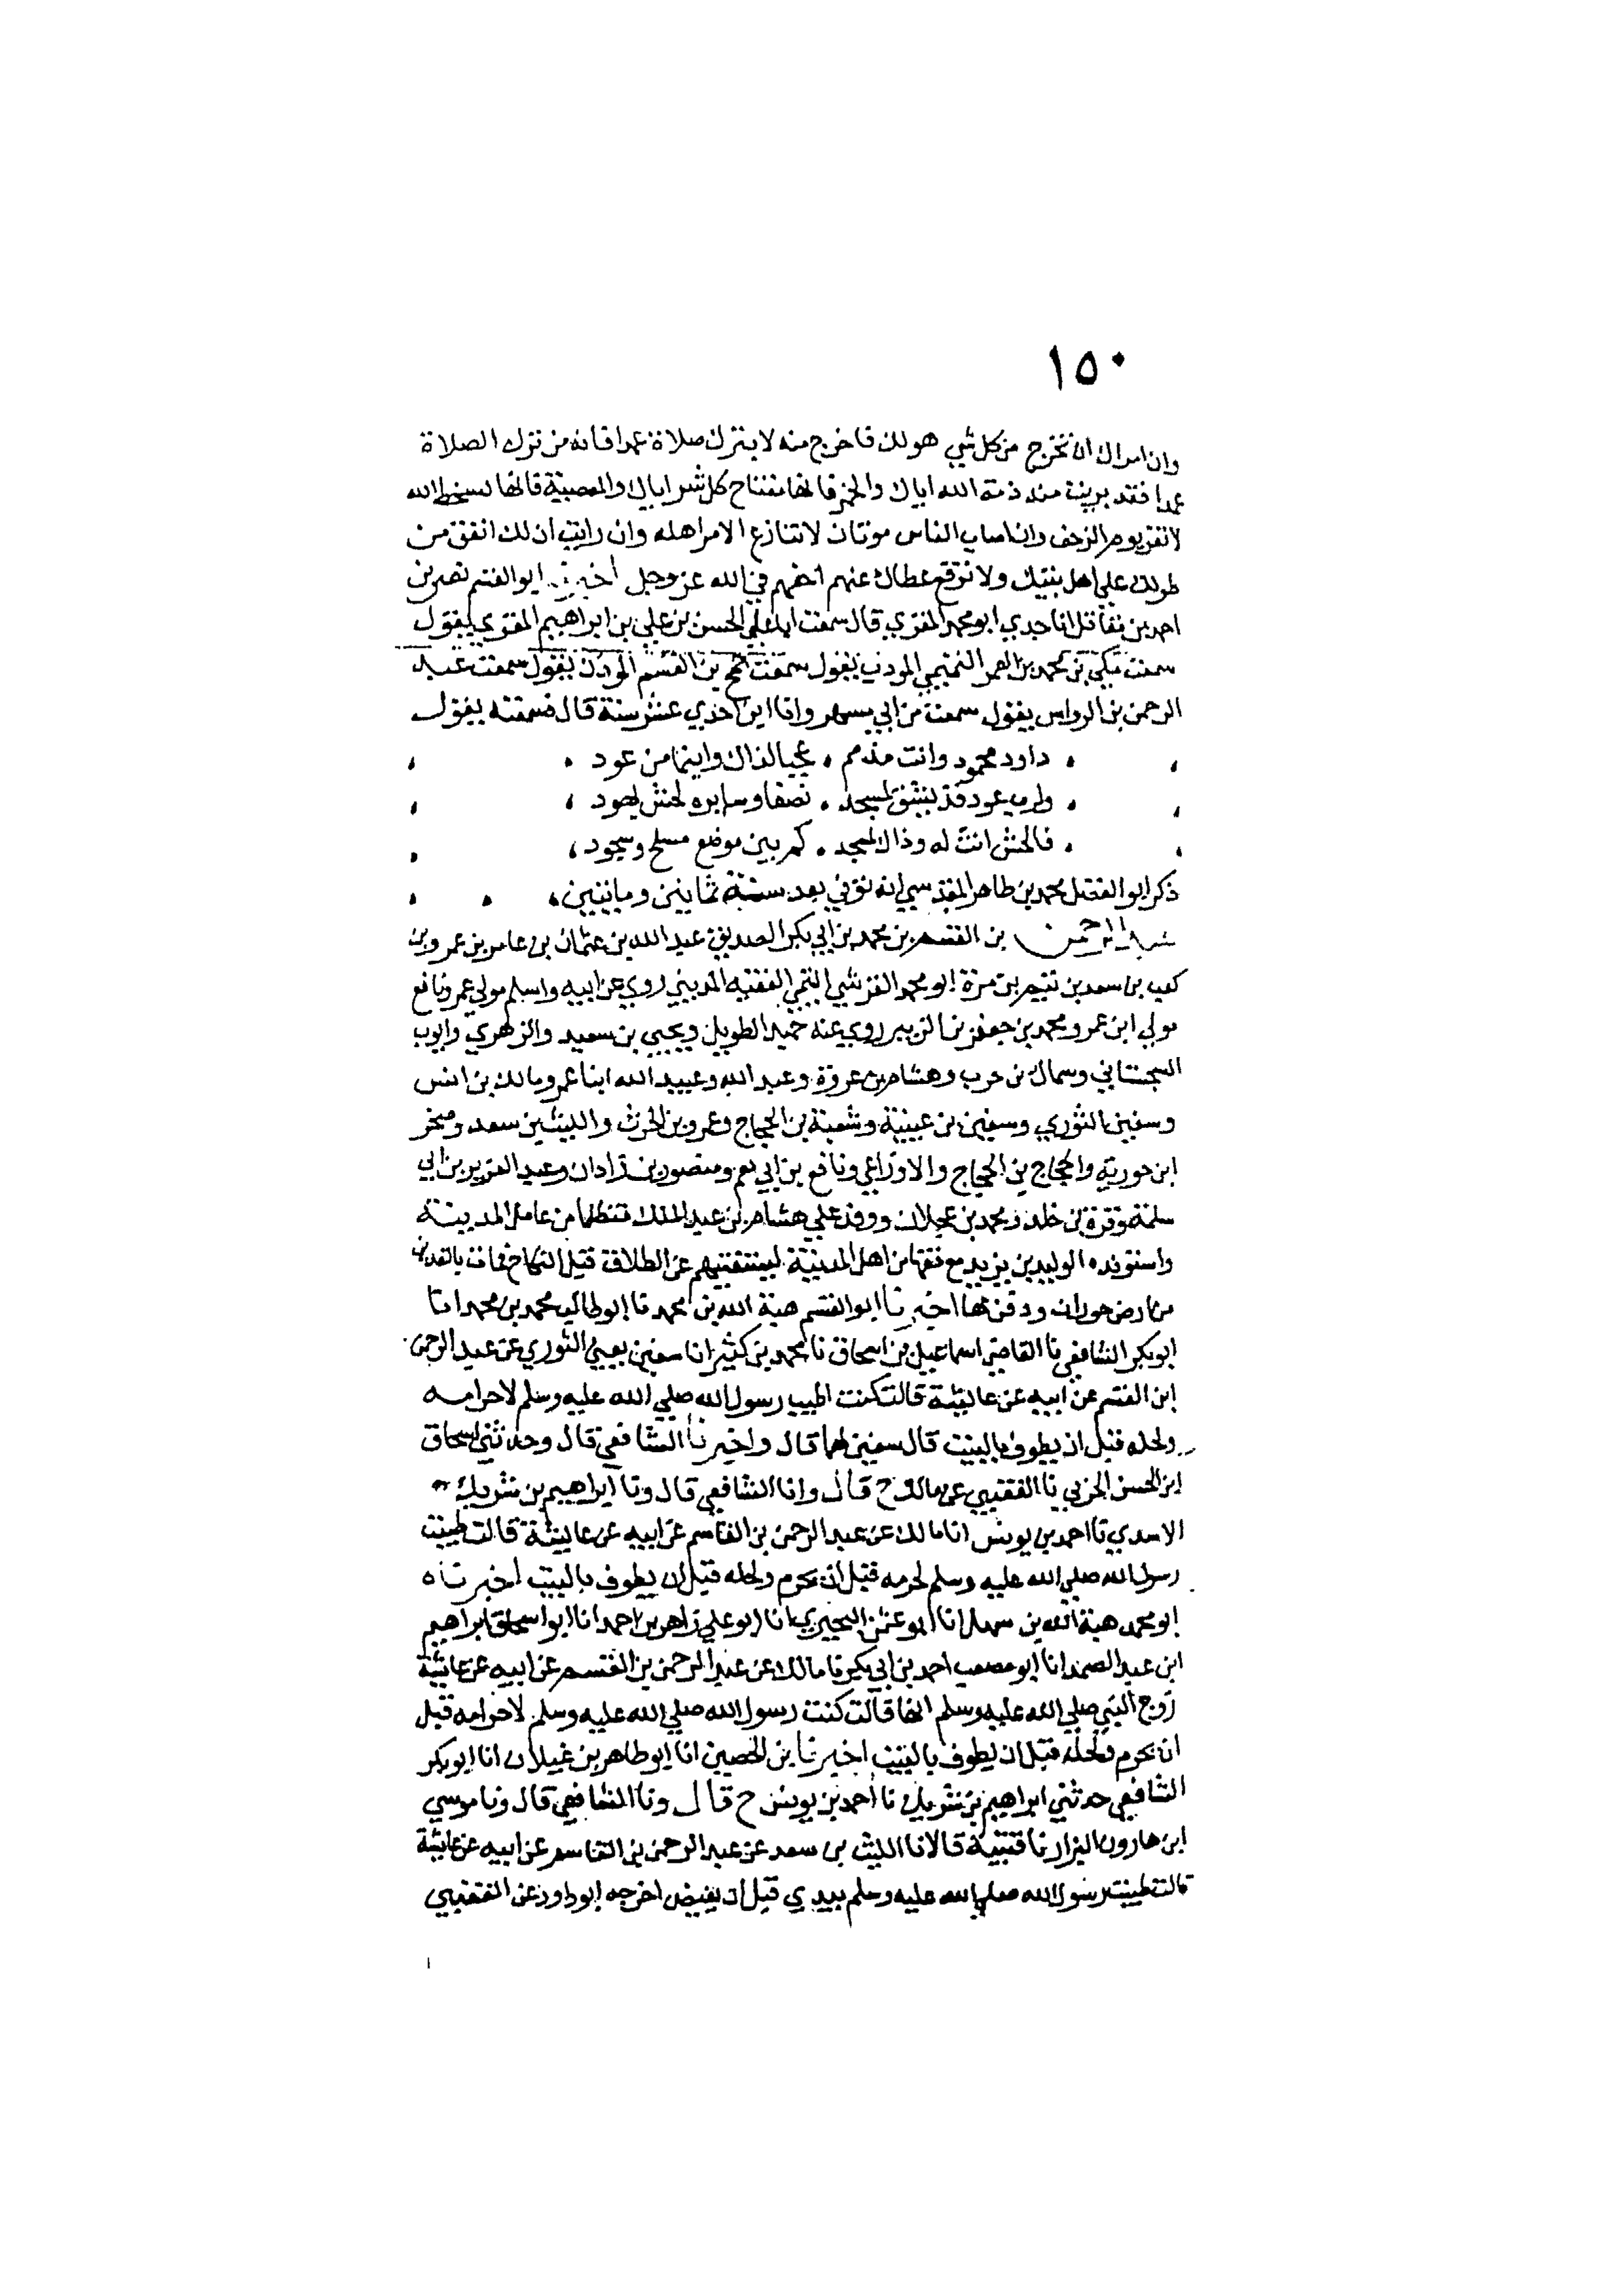 ١٥٠
وان امراك ان تخرج من كل شي هو لك فاخرج منه لا يترك صلاة عمدا فانه من ترك الصلاة
عمدا فقد بريت منه ذمة الله اياك والخمر فانها مفتاح كل شر اياك والمعصية فانها لسخط الله
لا تفر يوم الزحف وان اصاب الناس موتان لا تنازع الامر اهله وان رايت ان لك انفق من
طولك علي اهل بيتك ولا ترفع عصاك عنهم اخفهم في الله عز وجل اخبرنا ابو القسم نصر بن
احمد بن مقاتل انا جدي ابو محمد المقري قال سمعت ابا علي الحسن بن علي بن ابراهيم المقري يقول
سمعت مكي بن محمد بن الغمر التميمي المودب يقول سمعت جمح بن القسم الموذن يقول سمعت عبد
الرحمن بن الرواس يقول سمعت من ابي مسهر وانا ابن احدي عشر سنة قال فسمعته يقول
داود محمود وانت مذمم ، عجبا لذاك وانتما من عود
ولرب عود قد يشق لمسجد ، نصفا وسايره لحش يهود
فالحش انت له وذاك لمسجد ، كم بين موضع مسلح وسجود
ذكر ابو الفضل محمد بن طاهر المقدسي انه توفي بعد سنة ثمانين وماتيين
عبد الرحمن بن القسم بن محمد بن ابي بكر الصديق عبد الله بن عثمان بن عامر بن عمرو بن
كعب بن سعد بن تيم بن مرة ابو محمد القرشي التيمي الفقيه المديني روي عن ابيه واسلم مولي عمر ونافع
مولي ابن عمر ومحمد بن جعفر بن الزبير روي عنه حميد الطويل ويحيي بن سعيد والزهري وايوب
السجستاني وسماك بن حرب وهشام بن عروة وعبد الله وعبيد الله ابنا عمر ومالك بن انس
وسفين الثوري وسفين بن عيينة وشعبة بن الحجاج وعمرو بن الحرث والليث بن سعد وصخر
ابن جورية والحجاج بن الحجاج والاوزاعي ونافع بن ابي نعم ومنصور بن زادان وعبد العزيز بن ابي
سلمة وقرة بن خلد ومحمد بن عجلان ووفد علي هشام بن عبد الملك متظلما من عامل المدينة
واستوفده الوليد بن يزيد مع فقها من اهل المدينة ليستفتيهم عن الطلاق قبل النكاح فمات بالفدين
من ارض حوران ودفن بها اخبرنا ابو القسم هبة الله بن محمد نا ابو طالب محمد بن محمد انا
ابو بكر الشافعي نا القاضي اسماعيل بن اسحاق نا محمد بن كثير انا سفين يعني الثوري عن عبد الرحمن
ابن القسم عن ابيه عن عايشة قالت كنت اطيب رسول الله صلي الله عليه وسلم لاحرامه
ولحله قبل ان يطوف بالبيت قال سفين لهما قال واخبرنا الشافعي قال وحدثني اسحاق
ابن الحسن الحربي نا القعنبي عن مالك ح قال وانا الشافعي قال ونا ابراهيم بن شريك
الاسدي نا احمد بن يونس انا مالك عن عبد الرحمن بن القاسم عن ابيه عن عايشة قالت طيبت
رسول الله صلي الله عليه وسلم لحرمه قبل ان يحرم ولحله قبل ان يطوف بالبيت اخبرناه
ابو محمد هبة الله بن سهل انا ابو عثمن البحيري انا ابو علي زاهر بن احمد انا ابو اسحاق ابراهيم
ابن عبد الصمد انا ابو مصعب احمد بن ابي بكر نا مالك عن عبد الرحمن بن القسم عن ابيه عن عايشة
زوج النبي صلي الله عليه وسلم انها قالت كنت رسول الله صلي الله عليه وسلم لاحرامه قبل
ان يحرم ولحله قبل ان يطوف بالبيت اخبرنا بن الحصين انا ابو طاهر بن غيلان انا ابو بكر
الشافعي حدثني ابراهيم بن شريك نا احمد بن يونس ح قال ونا الشافعي قال ونا موسي
ابن هارون البزار نا قتيبة قالا نا الليث بن سعد عن عبد الرحمن بن القاسم عن ابيه عن عايشة
قالت طيبت رسول الله صلي الله عليه وسلم بيدي قبل ان يفيض اخرجه ابو داود عن القعنبي